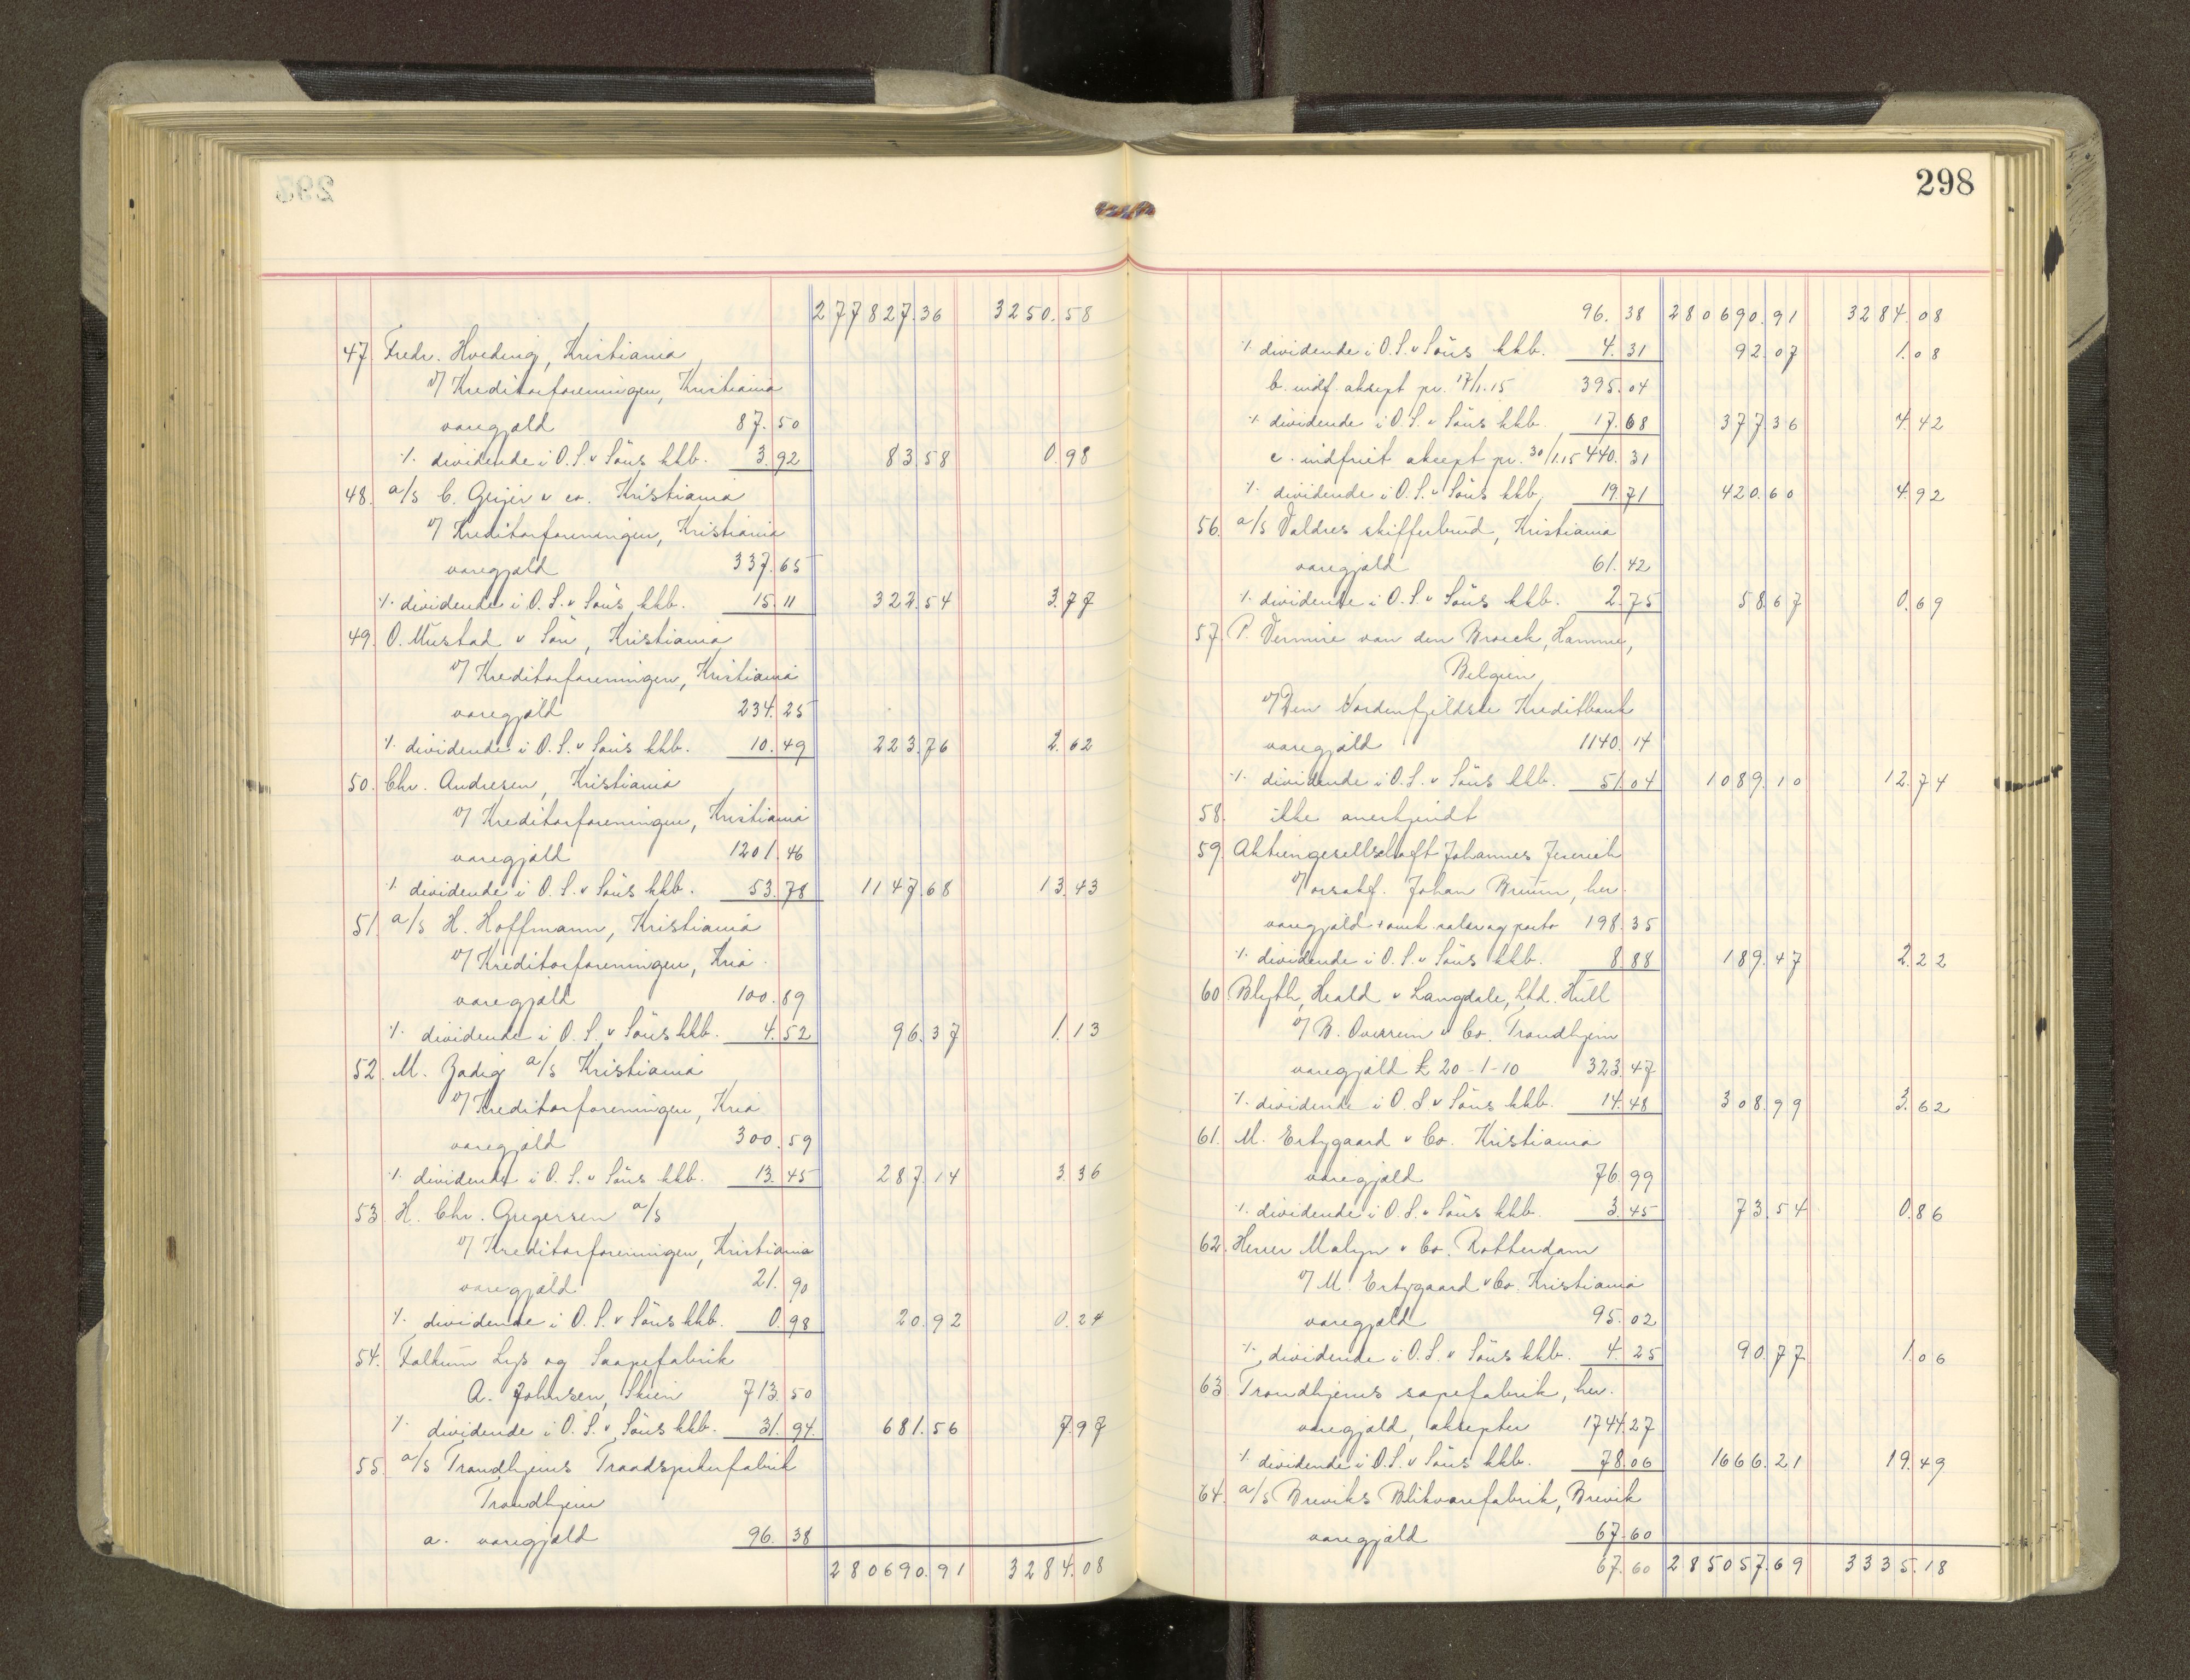 277827.36 3250.58
47. Fredr. Hveding, Kristiania
v/ Kreditorforeningen, Kristiania
varegjæld 87.50
% dividende i O.S. & Søns kkb. 3.92 83.58 0.98
48. a/s C. Geijer & co. Kristiania
v/ Kreditorforeningen, Kristiania
varegjæld 337.65
% dividende i O.S. & Søns kkb. 15.11 322.54 3.77
49. O. Mustad & Søn, Kristiania
v/ Kreditorforeningen, Kristiania
varegjæld 234.25
% dividende i O.S. & Søns kkb. 10.49 223.76 2.62
50. Chr. Andresen, Kristiania
v/ Kreditorforeningen, Kristiania
varegjæld 1201.46
% dividende i O.S. & Søns kkb. 53.78 1147.68 13.43
51. a/s H. Hoffmann, Kristiania
v/ Kreditorforeningen, Kria.
varegjæld 100.89
% dividende i O.S. & Søns kkb. 4.52 96.37 1.13
52. M. Zadig a/s Kristiania
v/ Kreditorforeningen, Kria
varegjæld 300.59
% dividende i O.S. & Søns kkb. 13.45 287.14 3.36
53. H. Chr. Gregersen a/s
v/ Kreditorforeningen, Kristiania
varegjæld 21.90
% dividende i O.S. & Søns kkb. 0.98 20.92 0.24
54. Falkum Lys og Saapefabrik
A. Johnsen, Skien 713.50
% dividende i O.S. & Søns kkb. 31.94 681.56 7.97
55. a/s Trondhjems Traadspikerfabrik
Trondhjem
a. varegjæld 96.38
280690.91 3284.08
298
96.38 280690.91 3284.08
% dividende i O.S. & Søns kkb. 4.31 92.07 1.08
b. indf. aksept pr. 17/1.15 395.04
% dividende i O.S. & Søns kkb. 17.68 377.36 4.42
c. indfriet aksept pr. 30/1.15 440.31
% dividende i O.S. & Søns kkb. 19.71 420.60 4.92
56. a/s Valdres skifferbrud, Kristiania
varegjæld 61.42
% dividende i O.S. & Søns kkb. 2.75 58.67 0.69
57. P. Vermire van den Broeck, Hamme,
Belgien,
v/ Den Nordenfjeldske Kreditbank
varegjæld 1140.14
% dividende i O.S. & Søns kkb. 51.04 1089.10 12.74
58. ikke anerkjendt
59. Aktiengesellschaft Johannes Jeserich
v/ orsakf. Johan Bruun, her.
varegjæld + omk. salær og porto 198.35
% dividende i O.S. & Søns kkb. 8.88 189.47 2.22
60. Blyth, Heald & Langdale, Ltd. Hull
v/ B. Overrein & Co. Trondhjem
varegjæld £ 20-1-10 323.47
% dividende i O.S. & Søns kkb. 14.48 308.99 3.62
61. M. Ertzgaard & Co. Kristiania
varegjæld 76.99
% dividende i O.S. & Søns kkb. 3.45 73.54 0.86
62. Herrer Malyn & Co. Rotterdam
v/ M. Ertzgaard & Co. Kristiania
varegjæld 95.02
% dividende i O.S. & Søns kkb. 4.25 90.77 1.06
63. Trondhjems sæpefabrik, her.
varegjæld, aksepter 1744.27
% dividende i O.S. & Søns kkb. 78.06 1666.21 19.49
64. a/s Breviks Blikvarefabrik, Brevik
varegjæld 67.60
67.60 285057.69 3335.18